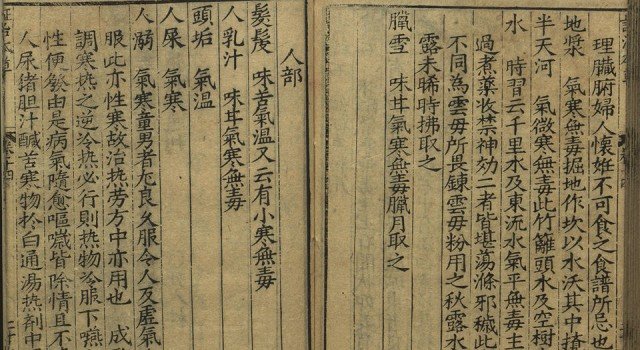 理臟腑婦人懷妊不可食之食譜所忌也
地漿　氣寒無毒掘地作坎以水沃其中攪
半天河　氣微寒無毒此竹籬頭水及空樹
水　時習云千里水及東流水氣平無毒主
過煮藥收禁神効二者皆堪蕩滌邪穢此
不同為雲母所畏鍊雲母粉用之秋露水
露未晞時拂取之
臘雪　味甘氣寒無毒臘月取之
人部
髮髲　味苦氣溫又云有小寒無毒
人乳汁　味甘氣寒無毒
頭垢　氣溫
人屎　氣寒
人溺　氣寒童男者尤良久服令人反虛氣
服此亦性寒故治热劳方中亦用也　成
調寒热之逆冷热必行則热物冷服下嚥
性便發由是病氣隨愈嘔噦皆除情且不
人尿猪胆汁鹹苦寒物於白通湯热剤中